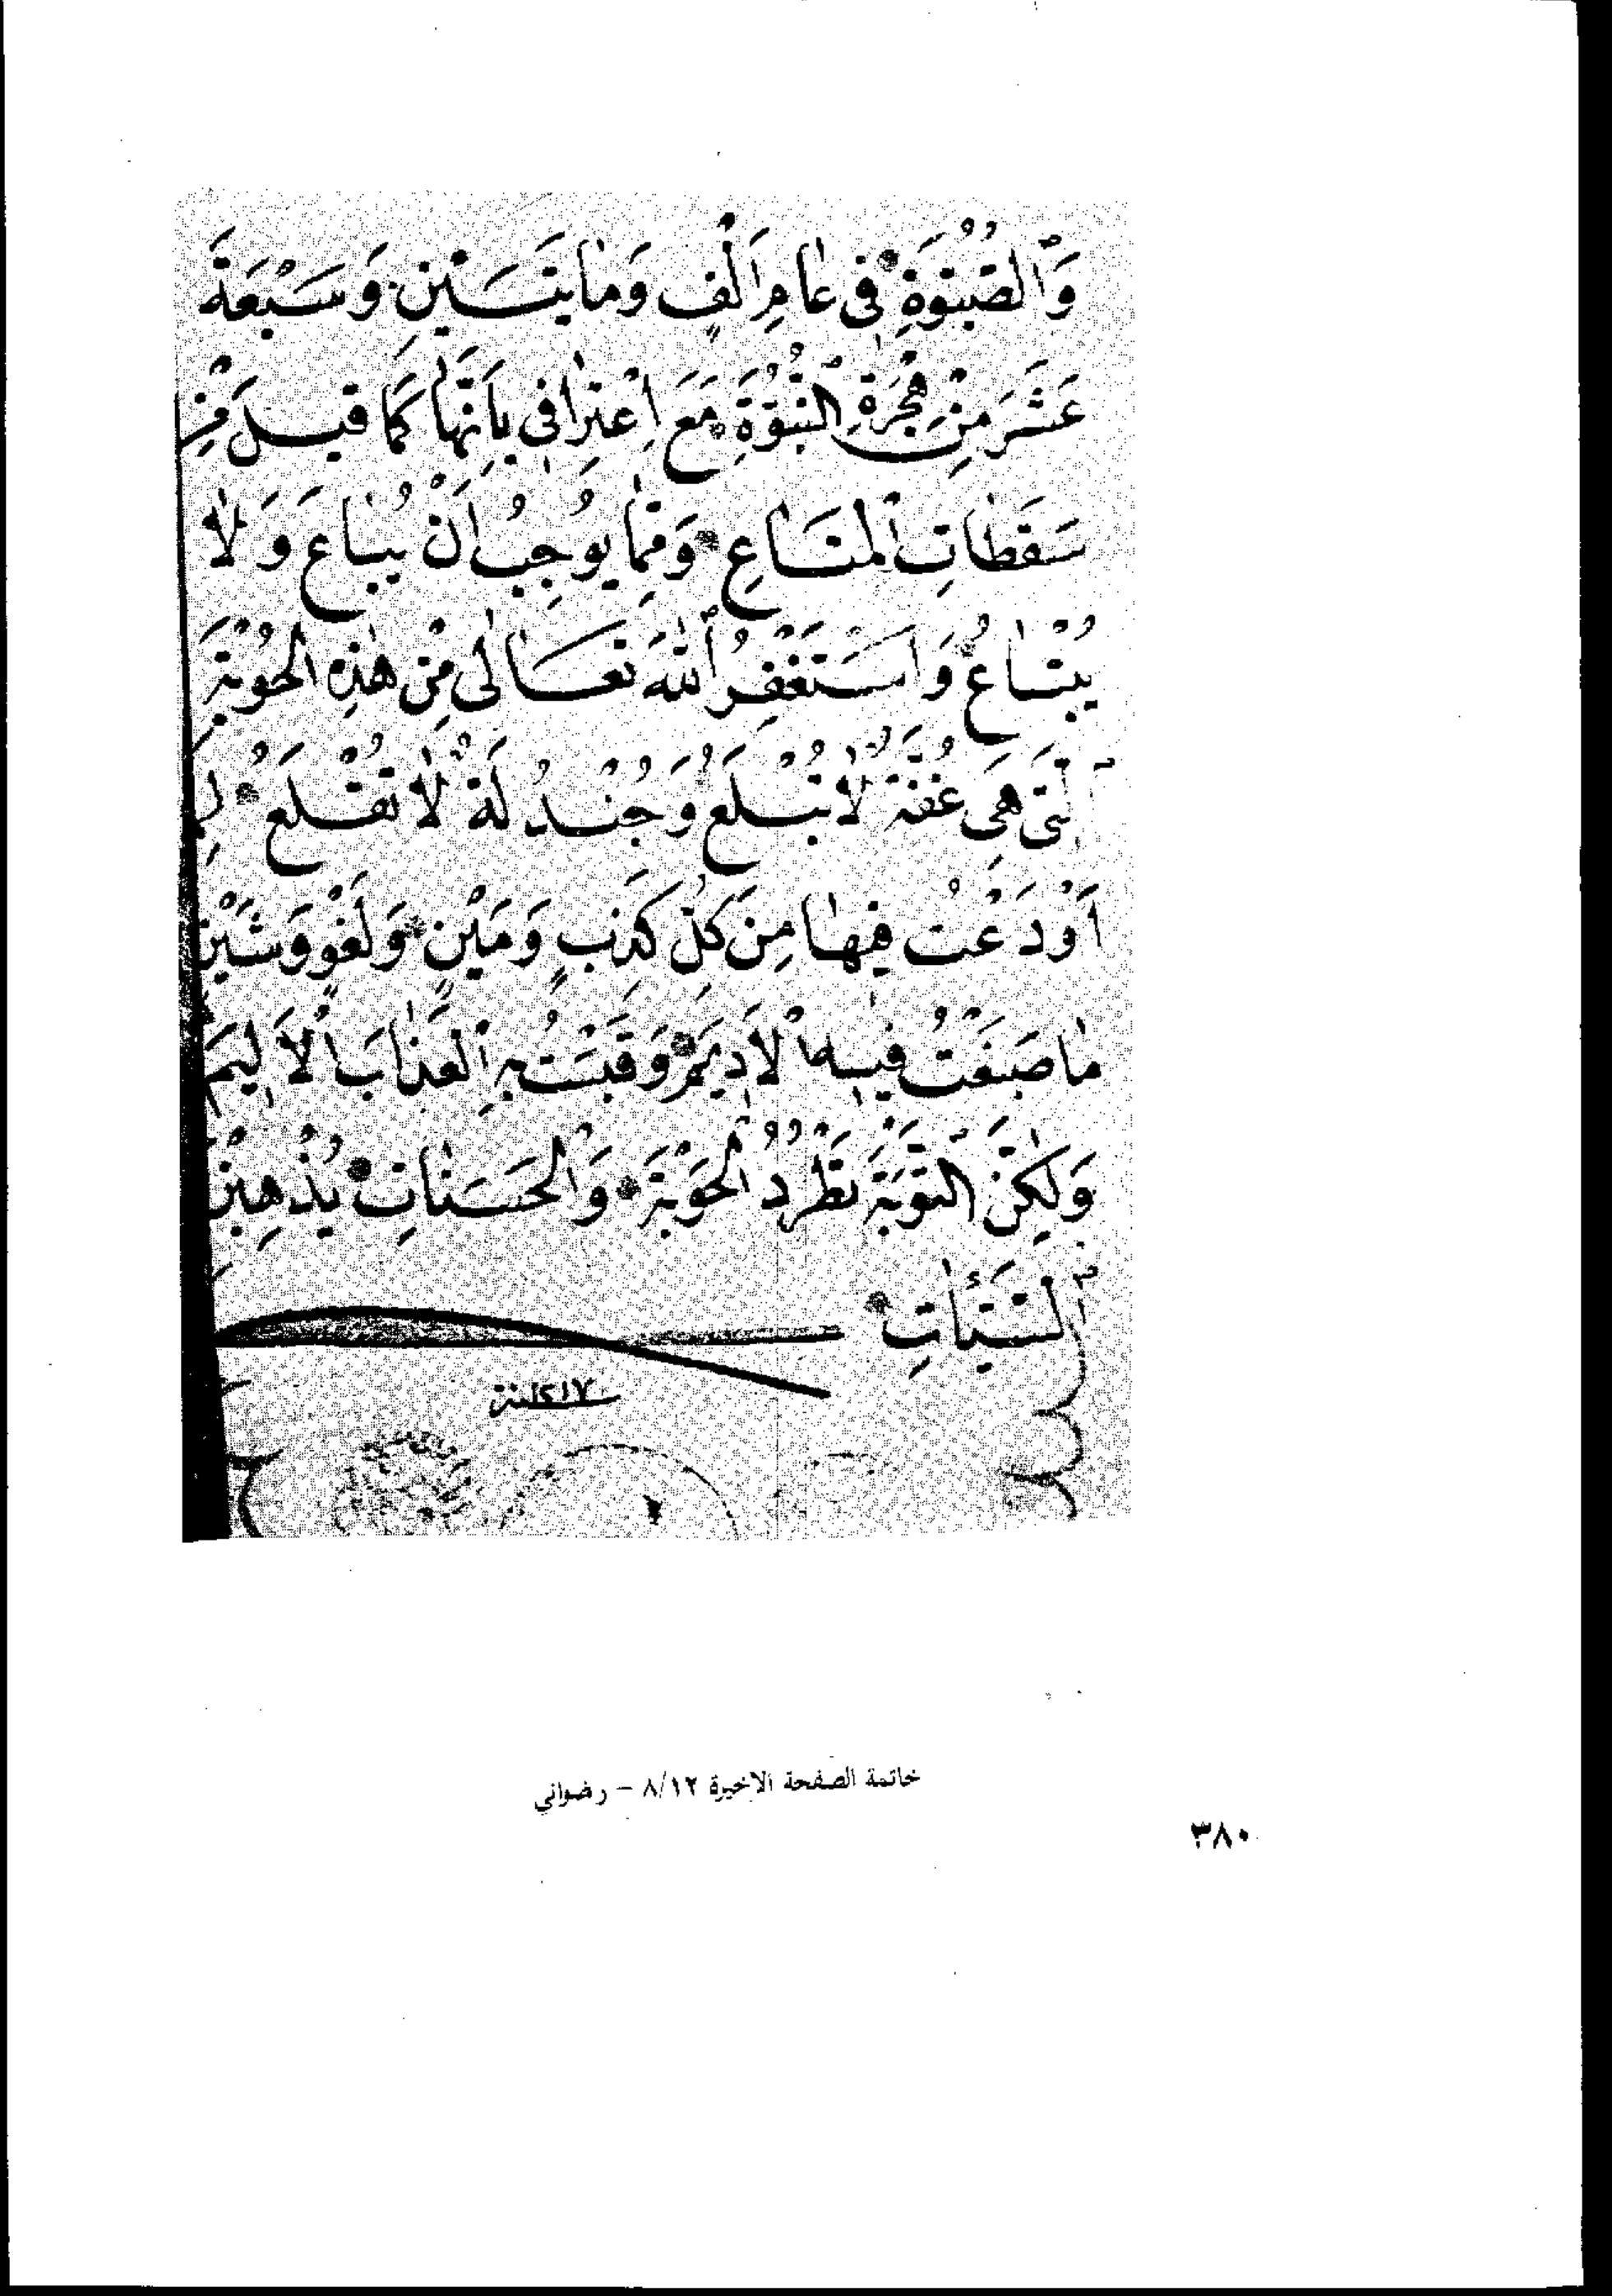 وَالصُّبُوَّةِ فِى عَامِ اَلْفٍ وَمَايَتَيْنِ وَسَبْعَةَ
عَشَرَ مِنْ هِجْرَةِ النُّبُوَّةِ مَعَ اِعْتِرَافِى بِاَنَّهَا كَمَا قِيلَ مِنْ
سَقَطَاتِ الْمَتَاعِ وَمِمَّا يُوجِبُ اَنْ يُبَاعَ وَلَا
يُبْتَاعُ وَاسْتَغْفِرُ اللّٰهَ تَعَالٰى مِنْ هٰذِهِ الْحُوْبَةِ
الَّتِى هِىَ غُصَّةٌ لَا تُبْلَعُ وَجُنْدُلَةٌ لَا تُقْلَعُ لِمَا
اَوْدَعْتُ فِيهَا مِنَ كُلِّ كَذِبٍ وَمَيْنٍ وَلَغْوٍ وَشَيْنٍ
مَا صَبَغْتُ فِيهِ الْاَدِيمَ وَ بِهِ الْعَذَابَ الْاَلِيمَ
وَلٰكِنَّ التَّوْبَةَ تَطْرُدُ الْحَوْبَةَ وَالْحَسَنَاتِ يُذْهِبْنَ
السَّيِّئَاتِ
خاتمة الصفحة الاخيرة ٨/١٢ – رضواني
٣٨٠